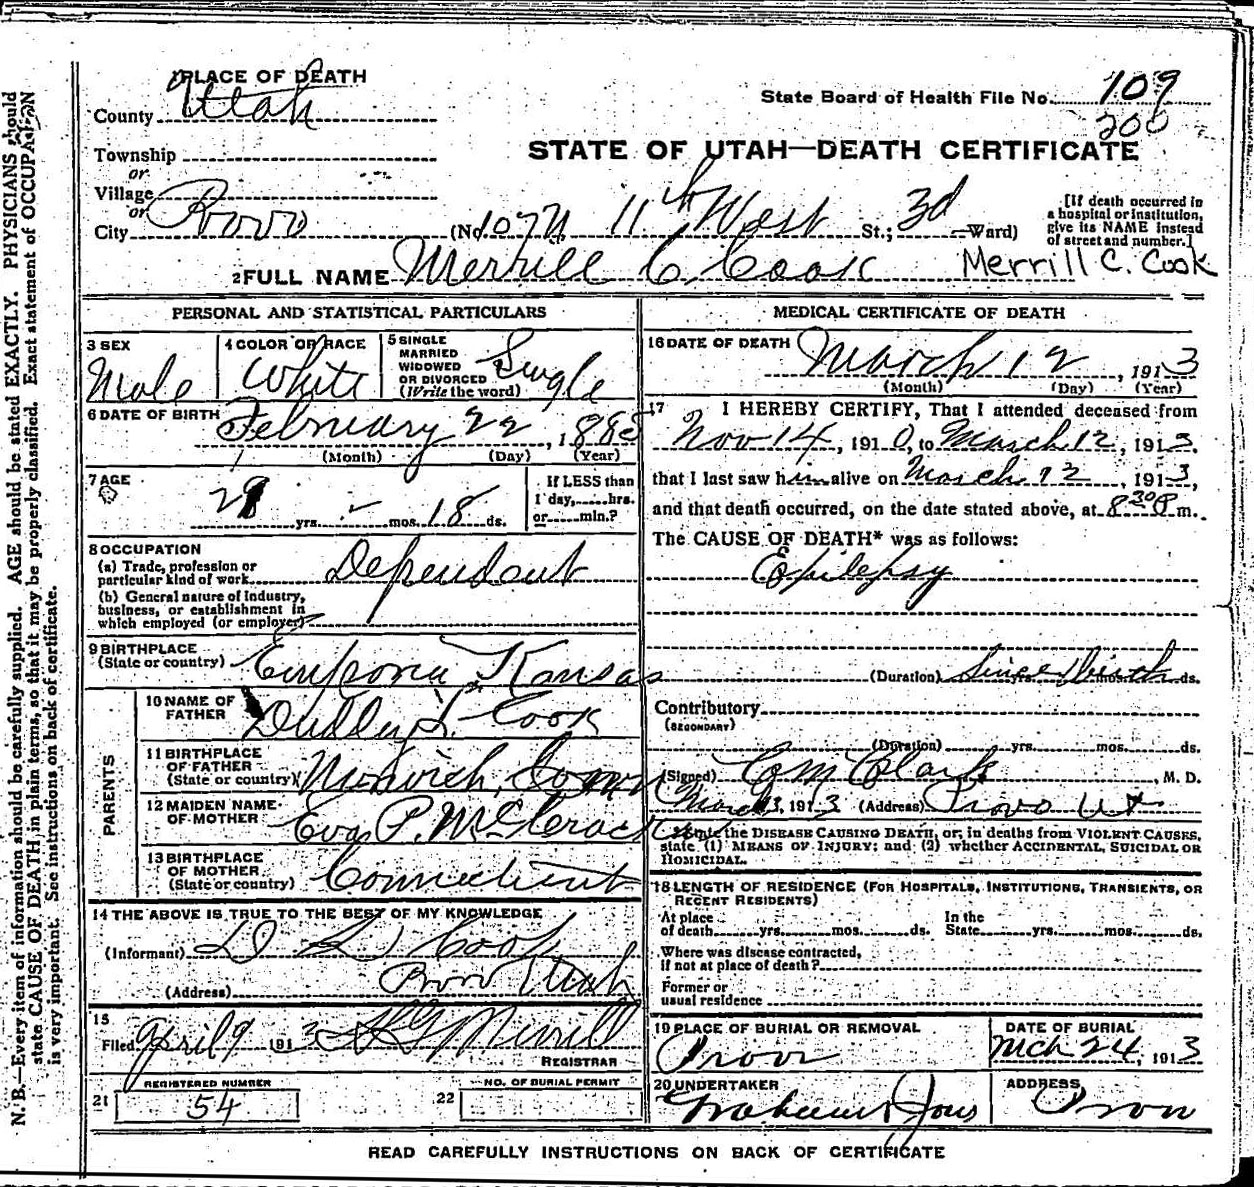 PLACE OF DEATH
County Utah
State Board of Health File No. 109
200
Township
or
Village
or
City Provo
STATE OF UTAH—DEATH CERTIFICATE
(No. 107 N 11th West St.; 3d Ward)
[If death occurred in
a hospital or institution,
give its NAME instead
of street and number.]
2 FULL NAME Merrill C. Cook Merrill C. Cook
PERSONAL AND STATISTICAL PARTICULARS
3 SEX
Male
4 COLOR OR RACE
White
5 SINGLE
MARRIED
WIDOWED
OR DIVORCED
(Write the word)
Single
6 DATE OF BIRTH
February 22, 1885
(Month) (Day) (Year)
7 AGE
yrs. - mos. 18 ds.
If LESS than
1 day, hrs.
or min.?
8 OCCUPATION
(a) Trade, profession or
particular kind of work Dependent
(b) General nature of industry,
business, or establishment in
which employed (or employer)
9 BIRTHPLACE
(State or country) Emporia, Kansas
PARENTS
10 NAME OF
FATHER Dudley L. Cook
11 BIRTHPLACE
OF FATHER
(State or country) Norwich, Conn
12 MAIDEN NAME
OF MOTHER Eva P. McCrack
13 BIRTHPLACE
OF MOTHER
(State or country) Connecticut
14 THE ABOVE IS TRUE TO THE BEST OF MY KNOWLEDGE
(Informant) D L Cook
(Address) Provo Utah
15
Filed April 9 1913 Merrill
REGISTRAR
REGISTERED NUMBER
21 54
NO. OF BURIAL PERMIT
22
MEDICAL CERTIFICATE OF DEATH
16 DATE OF DEATH March 12, 1913
(Month) (Day) (Year)
17 I HEREBY CERTIFY, That I attended deceased from
Nov 14, 1910, to March 12, 1913.
that I last saw him alive on March 12, 1913,
and that death occurred, on the date stated above, at 8 30 P m.
The CAUSE OF DEATH* was as follows:
Epilepsy
(Duration) Since birth yrs. mos. ds.
Contributory
(SECONDARY)
(Duration) yrs. mos. ds.
(Signed) Clark, M. D.
March 13, 1913 (Address) Provo Ut
*State the DISEASE CAUSING DEATH, or, in deaths from VIOLENT CAUSES,
state (1) MEANS OF INJURY; and (2) whether ACCIDENTAL, SUICIDAL OR
HOMICIDAL.
18 LENGTH OF RESIDENCE (FOR HOSPITALS, INSTITUTIONS, TRANSIENTS, OR
RECENT RESIDENTS)
At place
of death yrs. mos. ds.
In the
State yrs. mos. ds.
Where was disease contracted,
if not at place of death?
Former or
usual residence
19 PLACE OF BURIAL OR REMOVAL
Provo
DATE OF BURIAL
Mch 24, 1913
20 UNDERTAKER
ADDRESS
Provo
READ CAREFULLY INSTRUCTIONS ON BACK OF CERTIFICATE
N. B.—Every item of information should be carefully supplied. AGE should be stated EXACTLY. PHYSICIANS should
state CAUSE OF DEATH in plain terms, so that it may be properly classified. Exact statement of OCCUPATION
is very important. See instructions on back of certificate.